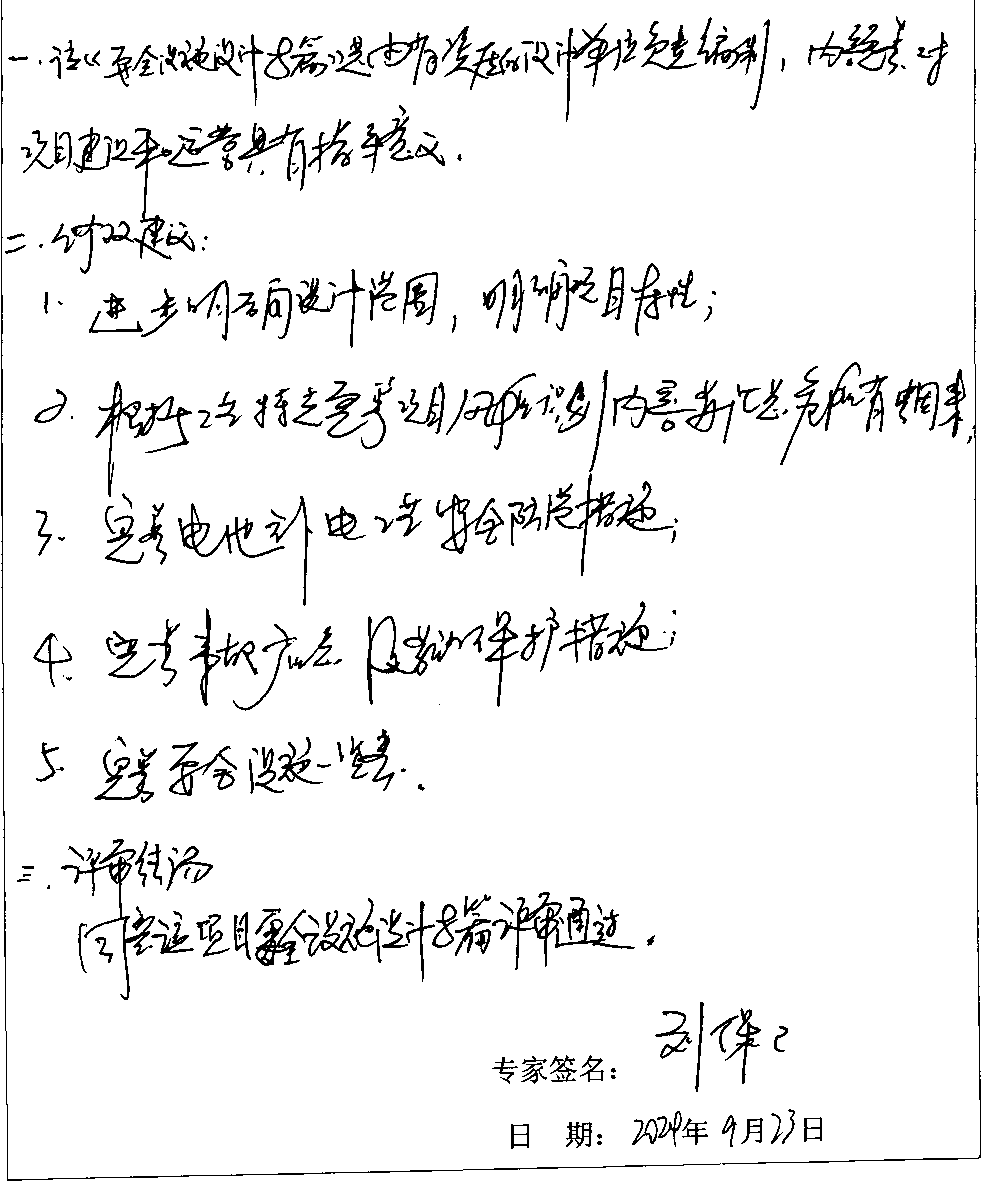 一.该《安全设施设计专篇》是由有资质的设计单位负责编制，内容完善.对
项目建设和运营具有指导意义.
二.修改建议:
1. 进一步明确设计范围，明确项目存性;
2. 根据工艺特点完善项目风险识别内容并汇总危险有害因素;
3. 完善电池补电工艺安全防范措施;
4. 完善事故应急及劳动保护措施;
5. 完善安全设施一览表.
三.评审结论
同意该项目安全设施设计专篇评审通过.
专家签名：刘保
日 期：2024年9月23日